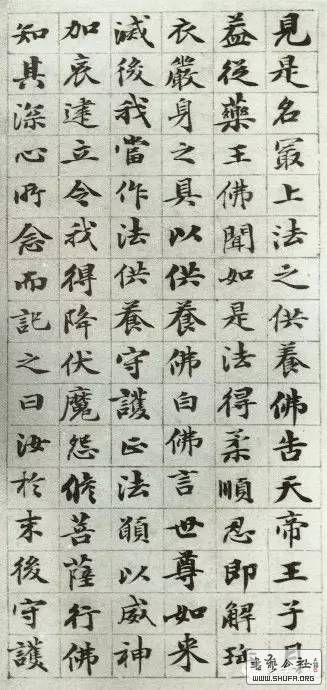 見是名冣上法之供養佛告天帝王子
蓋從藥王佛聞如是法得柔順忍即解
衣嚴身之具以供養佛白佛言世尊如来
滅後我當作法供養守護正法願以威神
加哀建立令我得降伏魔怨脩菩薩行佛
知其深心所念而記之曰汝於末後守護
WWW.SHUFA.ORG